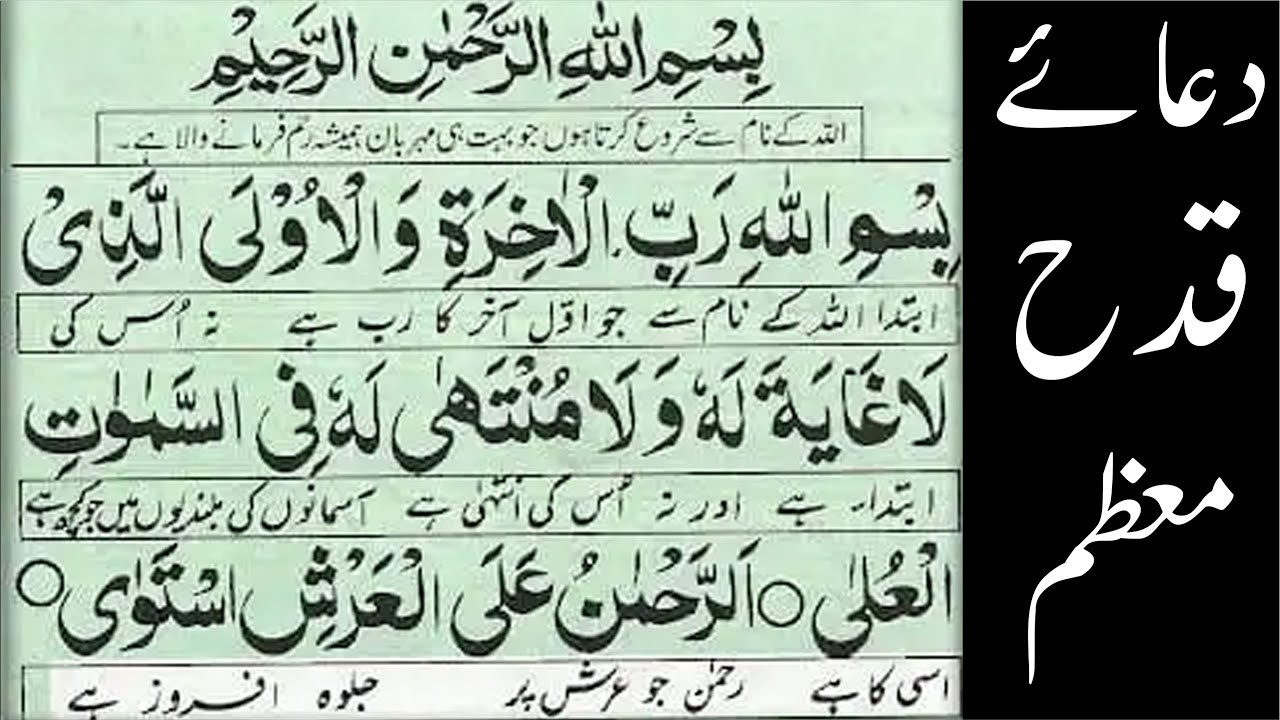 بِسْمِ اللهِ الرَّحْمٰنِ الرَّحِيْمِ
اللہ کے نام سے شروع کرتا ہوں جو بہت ہی مہربان ہمیشہ رحم فرمانے والا ہے۔
بِسْمِ اللهِ رَبِّ الْاٰخِرَةِ وَالْاُوْلَى الَّذِىْ
ابتدا اللہ کے نام سے جو اوّل آخر کا رب ہے نہ اُس کی
لَا غَايَةَ لَهٗ وَلَا مُنْتَهٰى لَهٗ فِى السَّمٰوٰتِ
ابتداء ہے اور نہ اُس کی انتہیٰ ہے آسمانوں کی بلندیوں میں جو کچھ ہے
الْعُلٰى ○ اَلرَّحْمٰنُ عَلَى الْعَرْشِ اسْتَوٰى ○
اسی کا ہے رحمٰن جو عرش پر جلوہ افروز ہے
دعائے
قدح
معظم